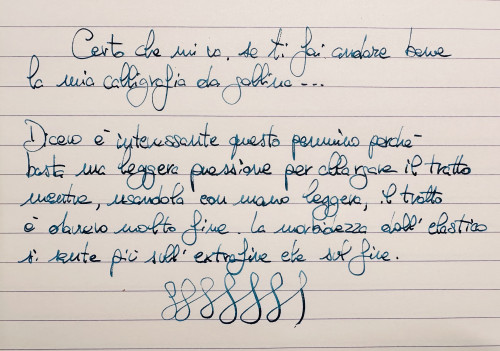 Certo che mi va, se ti fai andare bene
la mia calligrafia da gallina...
Dicevo è interessante questo pennino perché
basta una leggera pressione per allargare il tratto
mentre, usandola con mano leggera, il tratto
è davvero molto fine. La morbidezza dell'elastico
si sente più sull'extrafine che sul fine.